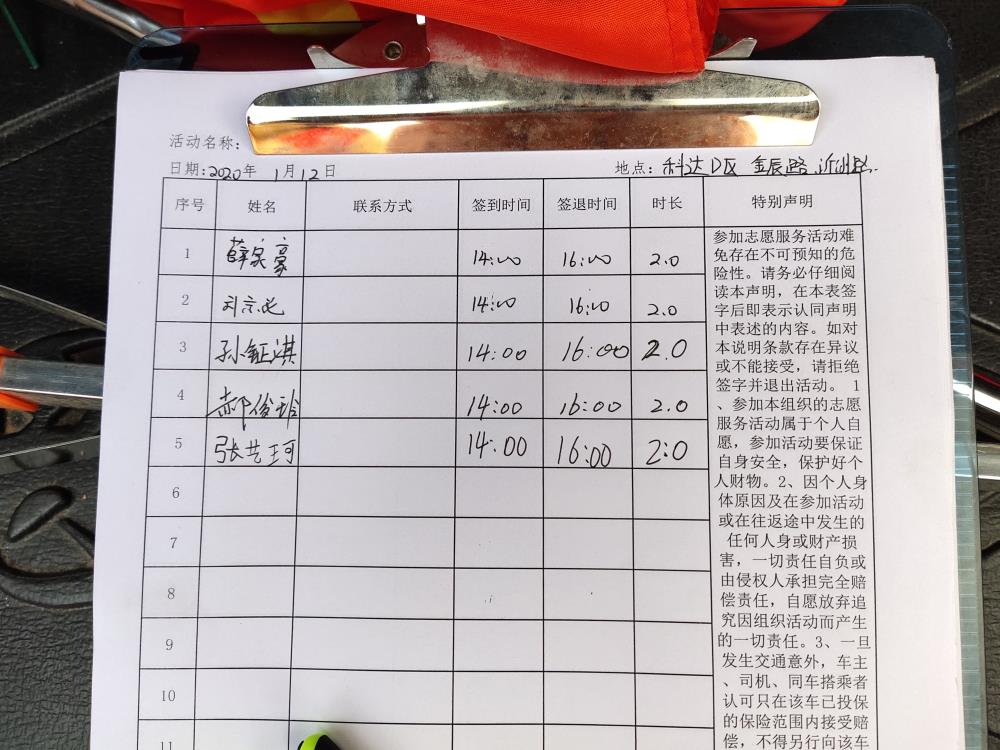 活动名称:
日期:2020年 1月12日 地点:科达D区 金辰路
序号 姓名 联系方式 签到时间 签退时间 时长 特别声明
1 薛家豪 14:00 16:00 2.0
2 刘 14:00 16:00 2.0
3 孙钲淇 14:00 16:00 2.0
4 郝俊 14:00 16:00 2.0
5 张艺珂 14:00 16:00 2:0
6
7
8
9
10
11
参加志愿服务活动难
免存在不可预知的危
险性。请务必仔细阅
读本声明，在本表签
字后即表示认同声明
中表述的内容。如对
本说明条款存在异议
或不能接受，请拒绝
签字并退出活动。 1
、参加本组织的志愿
服务活动属于个人自
愿，参加活动要保证
自身安全，保护好个
人财物。2、因个人身
体原因及在参加活动
或在往返途中发生的
任何人身或财产损
害，一切责任自负或
由侵权人承担完全赔
偿责任，自愿放弃追
究因组织活动而产生
的一切责任。3、一旦
发生交通意外，车主
、司机、同车搭乘者
认可只在该车已投保
的保险范围内接受赔
偿，不得另行向该车